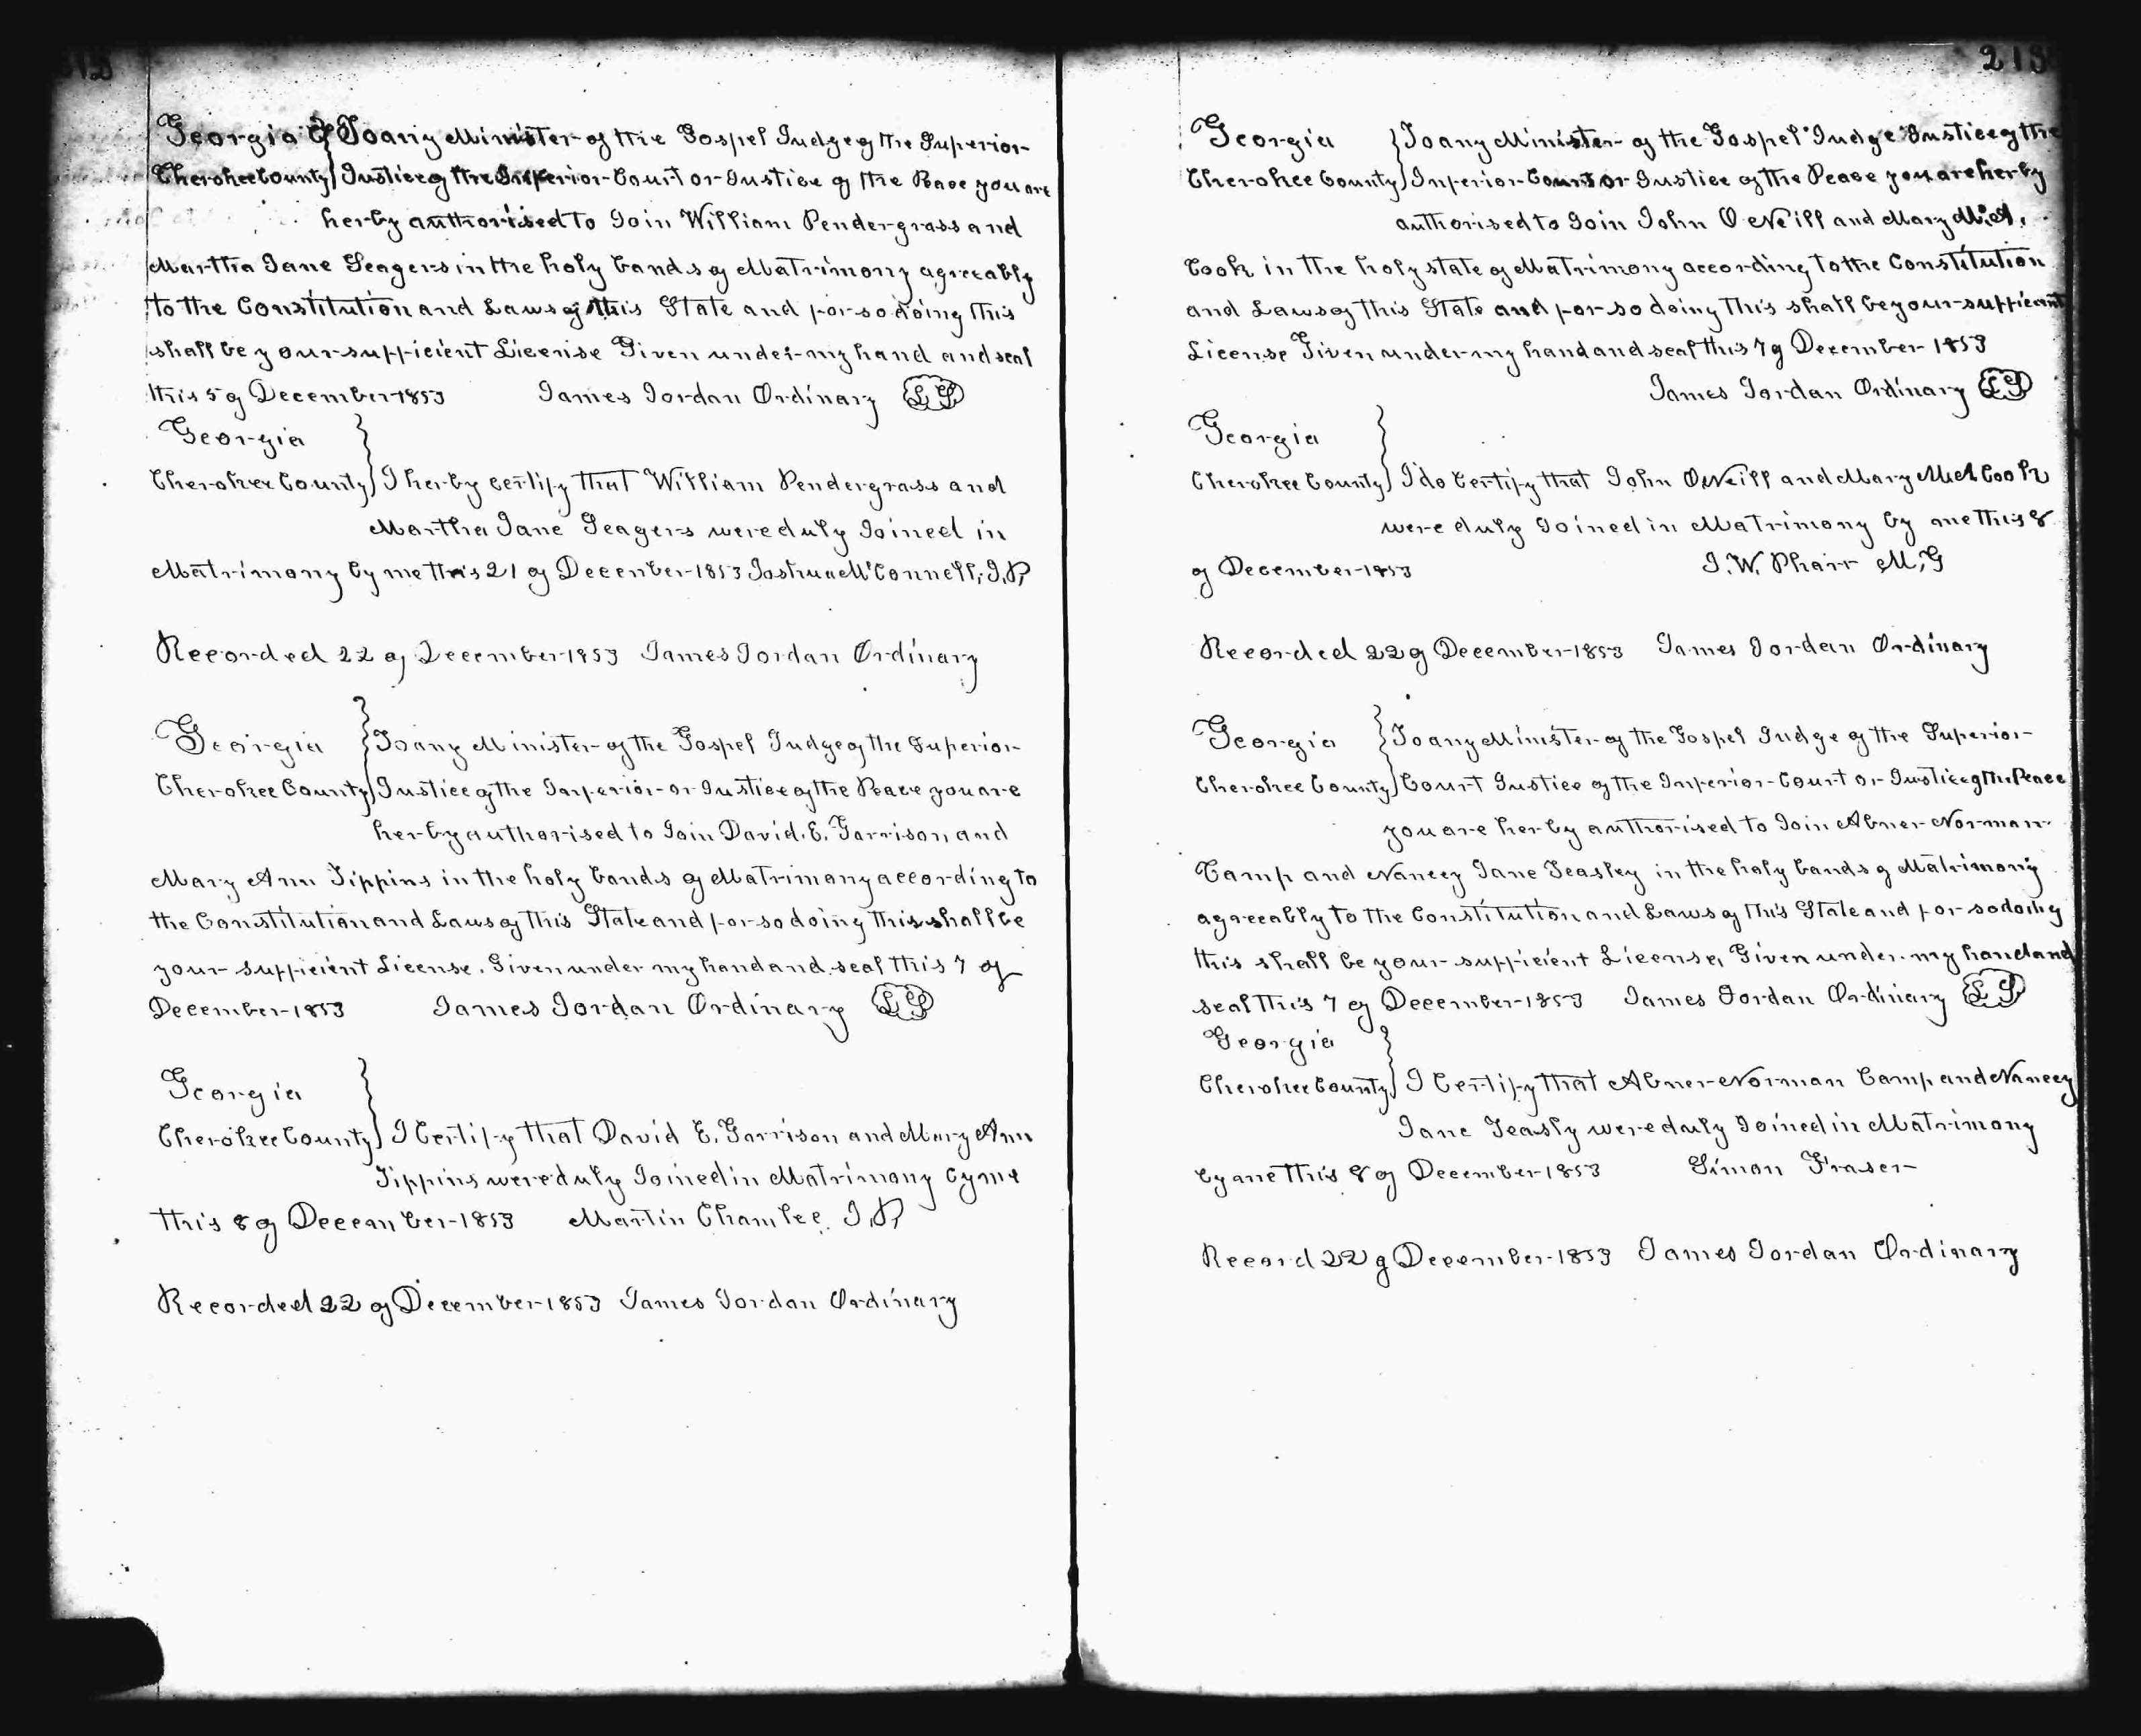 Georgia } To any Minister of the Gospel Judge of the Superior
Cherokee County } Justice of the Inferior Court or Justice of the Peace you are
herby authorised to Join William Pendergrass and
Martha Jane Seagers in the holy bands of Matrimony agreeably
to the Constitution and Laws of this State and for so doing this
shall be your sufficient License Given under my hand and seal
this 5 of December 1853 James Jordan Ordinary LS
Georgia }
Cherokee County } I herby certify that William Pendergrass and
Martha Jane Seagers were duly Joined in
Matrimony by me this 21 of December 1853 Joshua McConnell, J,P,
Recorded 22 of December 1853 James Jordan Ordinary
Georgia } To any Minister of the Gospel Judge of the Superior
Cherokee County } Justice of the Inferior or Justice of the Peace you are
herby authorised to Join David. E. Garrison, and
Mary Ann Tippins in the holy bands of Matrimony according to
the Constitution and Laws of this State and for so doing this shall be
your sufficient License. Given under my hand and seal this 7 of
December 1853 James Jordan Ordinary LS
Georgia }
Cherokee County } I Certify that David E. Garrison and Mary Ann
Tippins were duly Joined in Matrimony by me
this 8 of December 1853 Martin Chamlee J,P,
Recorded 22 of December 1853 James Jordan Ordinary
213
Georgia } To any Minister of the Gospel Judge Justice of the
Cherokee County } Inferior Court or Justice of the Peace you are herby
authorised to Join John O Neill and Mary
Cook in the holy state of Matrimony according to the Constitution
and Laws of this State and for so doing this shall be your sufficient
License Given under my hand and seal this 7 of December 1853
James Jordan Ordinary LS
Georgia }
Cherokee County } I do Certify that John ONeill and Mary Cook
were duly Joined in Matrimony by me this 8
of December 1853 J. W. Pharr M,G
Recorded 22 of December 1853 James Jordan Ordinary
Georgia } To any Minister of the Gospel Judge of the Superior
Cherokee County } Court Justice of the Inferior Court or Justice of the Peace
you are herby authorised to Join Abner Norman
Camp and Nancey Jane Teasley in the holy bands of Matrimony
agreeably to the Constitution and Laws of this State and for so doing
this shall be your sufficient License, Given under my hand and
seal this 7 of December 1853 James Jordan Ordinary LS
Georgia }
Cherokee County } I Certify that Abner Norman Camp and Nancey
Jane Teasly were duly Joined in Matrimony
by me this 8 of December 1853 Simon Fraser
Record 22 of December 1853 James Jordan Ordinary